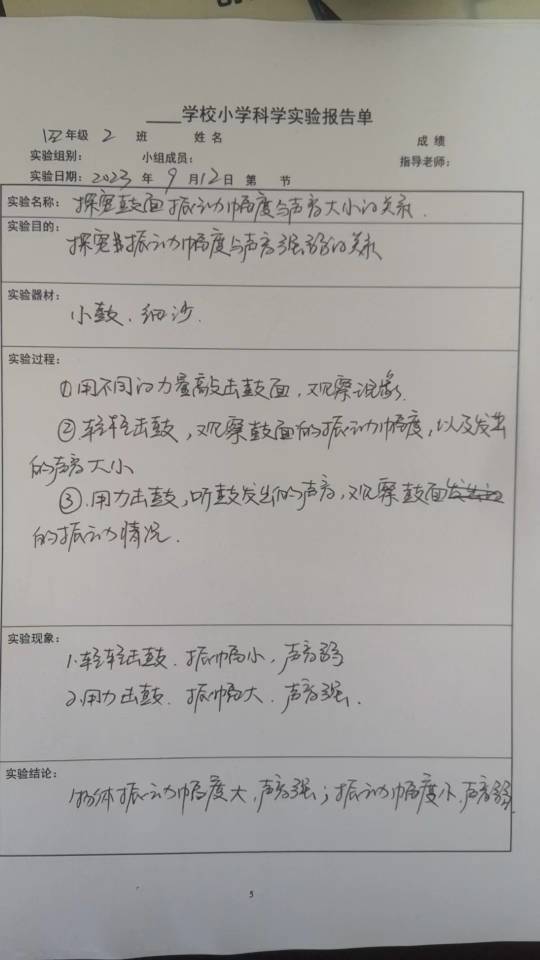 ____学校小学科学实验报告单
四年级 2 班 姓名 成绩
实验组别： 小组成员： 指导老师：
实验日期：2023 年 9 月 12 日 第 节
实验名称：探究鼓面振动幅度与声音大小的关系.
实验目的：
探究振动幅度与声音强弱的关系
实验器材：
小鼓、细沙.
实验过程：
①用不同的力量敲击鼓面，观察现象.
②轻轻击鼓，观察鼓面的振动幅度，以及发出
的声音大小
③.用力击鼓，听鼓发出的声音，观察鼓面
的振动情况.
实验现象：
1.轻轻击鼓.振幅小，声音弱
2.用力击鼓.振幅大.声音强.
实验结论：
物体振动幅度大，声音强；振动幅度小.声音弱.
5